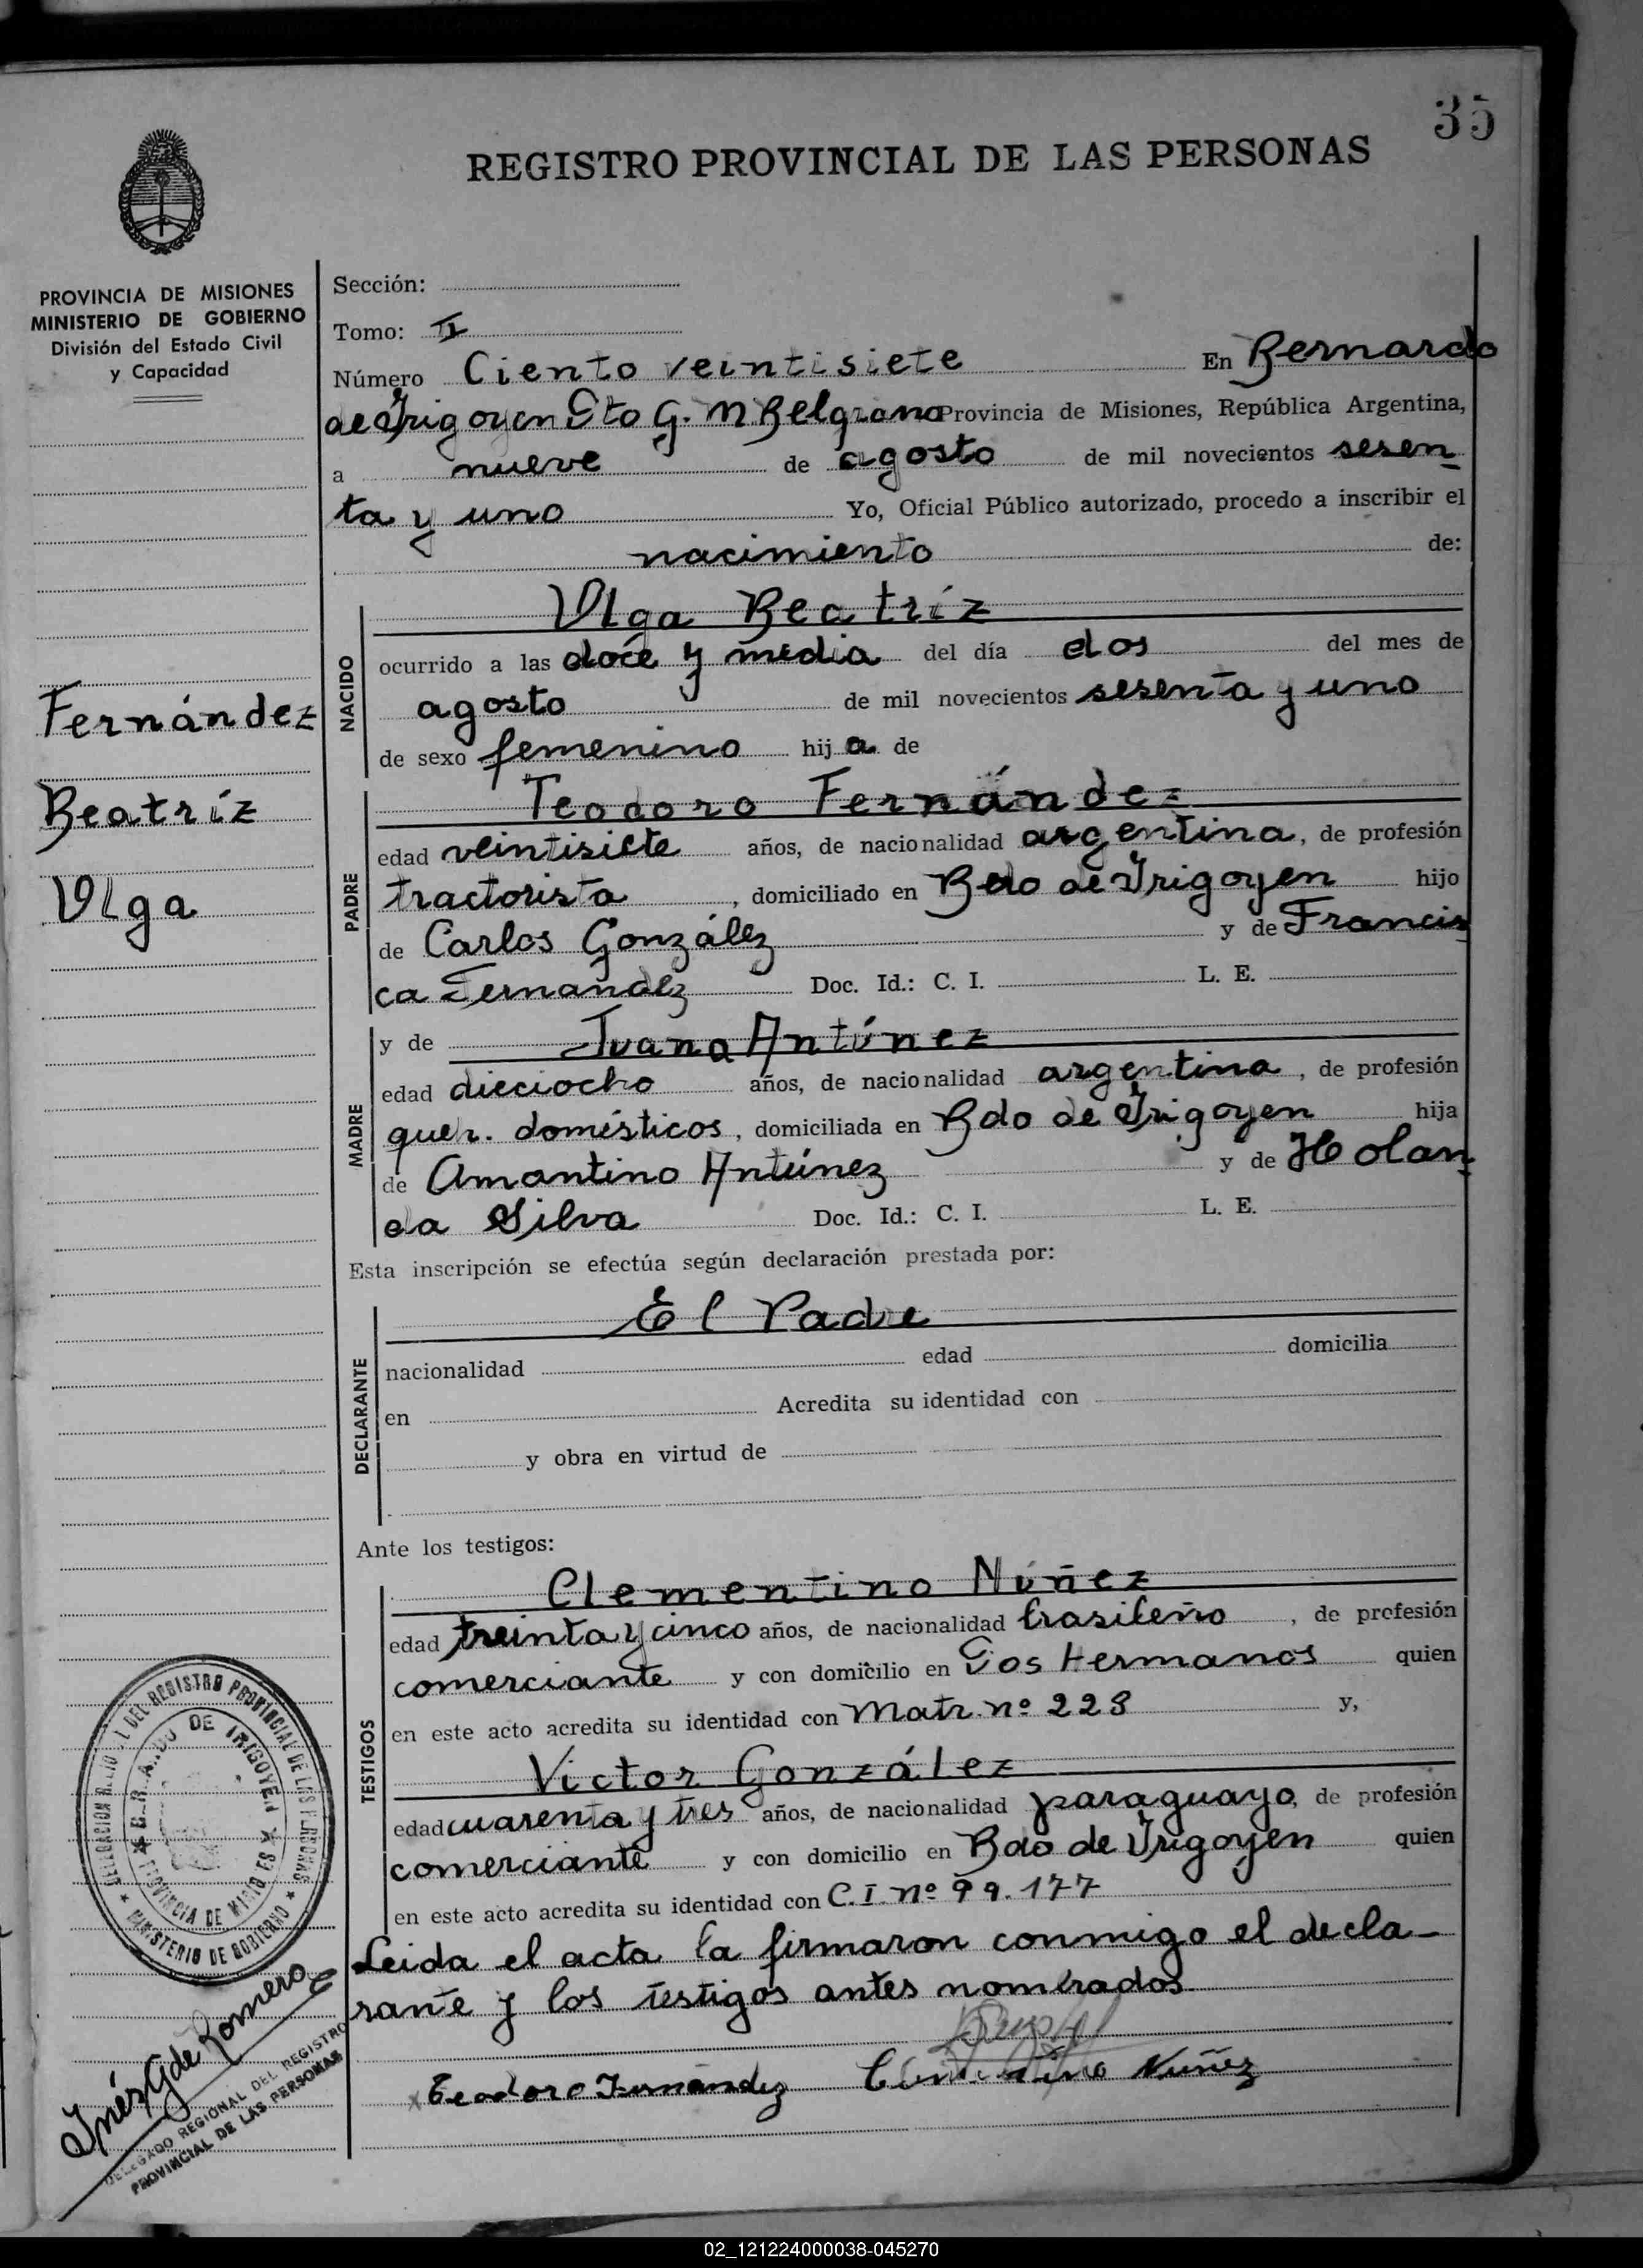 35
REGISTRO PROVINCIAL DE LAS PERSONAS
PROVINCIA DE MISIONES
MINISTERIO DE GOBIERNO
División del Estado Civil
y Capacidad
Fernández
Beatríz
Olga
Sección:
Tomo: II
Número Ciento veintisiete En Bernardo
de Irigoyen Dto G. M Belgrano Provincia de Misiones, República Argentina,
a nueve de agosto de mil novecientos sesen_
ta y uno Yo, Oficial Público autorizado, procedo a inscribir el
nacimiento de:
NACIDO
Olga Beatríz
ocurrido a las doce y media del día dos del mes de
agosto de mil novecientos sesenta y uno
de sexo femenino hija de
PADRE
Teodoro Fernández
edad veintisiete años, de nacionalidad argentina, de profesión
tractorista, domiciliado en Bdo de Irigoyen hijo
de Carlos González y de Francis
ca Fernández Doc. Id.: C. I. L. E.
MADRE
y de Juana Antúnez
edad dieciocho años, de nacionalidad argentina, de profesión
queh. domésticos, domiciliada en Bdo de Irigoyen hija
de Amantino Antúnez y de Holan_
da Silva Doc. Id.: C. I. L. E.
Esta inscripción se efectúa según declaración prestada por:
DECLARANTE
El Padre
nacionalidad edad domicilia
en Acredita su identidad con
y obra en virtud de
Ante los testigos:
TESTIGOS
Clementino Núñez
edad treinta y cinco años, de nacionalidad brasileño, de profesión
comerciante y con domicilio en Dos Hermanos quien
en este acto acredita su identidad con Matr. nº 223 y,
Victor González
edad cuarenta y tres años, de nacionalidad paraguayo, de profesión
comerciante y con domicilio en Bdo de Irigoyen quien
en este acto acredita su identidad con C.I. nº 99.177
Leida el acta la firmaron conmigo el decla-
rante y los testigos antes nombrados
x Teodoro Fernández Núñez
DEL REGISTRO PROVINCIAL DE LAS PERSONAS
MINISTERIO DE GOBIERNO
BERNARDO DE IRIGOYEN
PROVINCIA DE MISIONES
Inés G de Romero
DELEGADO REGIONAL DEL REGISTRO
PROVINCIAL DE LAS PERSONAS
02_121224000038-045270